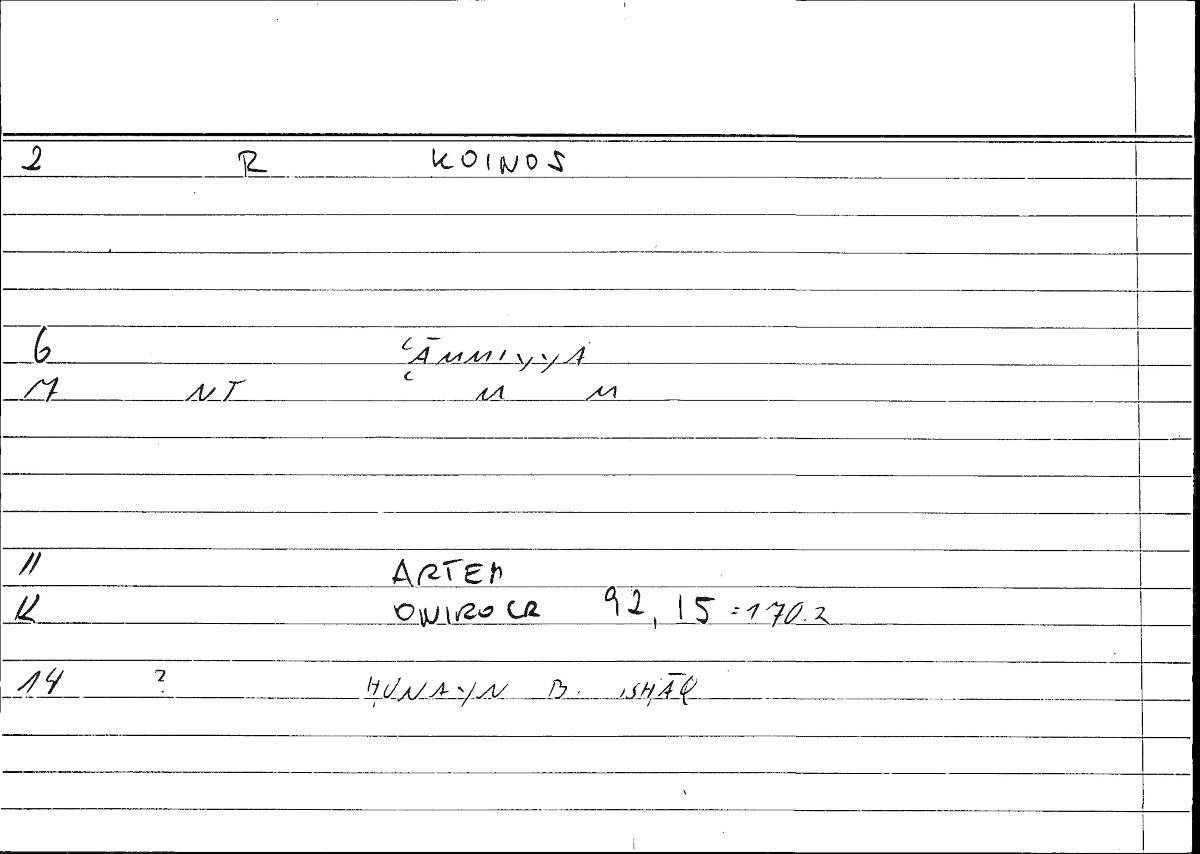 2 R KOINOS
6 ʿĀMMIYYA
7 NT ʿ " "
11 ARTEM
12 ONIROCR 92,15 =170.2
14 ? ḤUNAYN B. ISḤĀQ